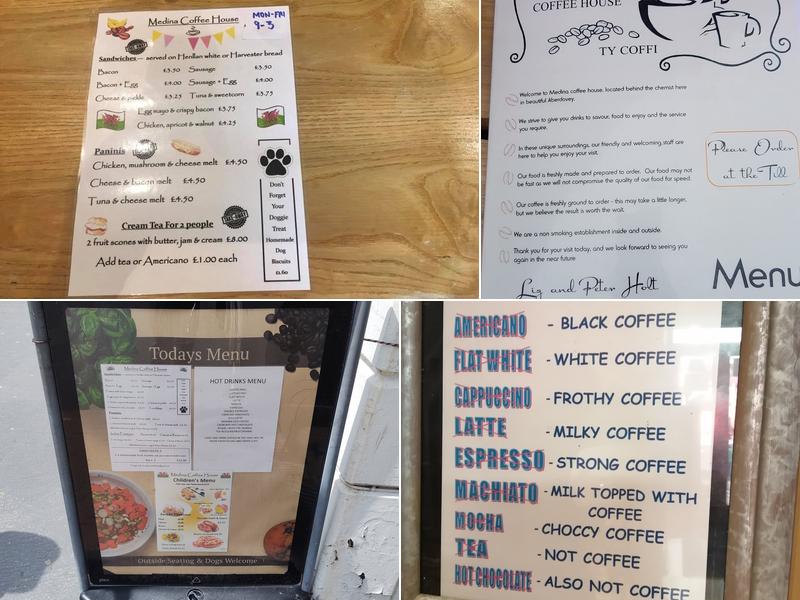 Medina Coffee House
MON-FRI
9-3
TAKE-AWAY
Sandwiches — served on Henllan white or Harvester bread
Bacon £3.50 Sausage £3.50
Bacon + Egg £4.00 Sausage + Egg £4.00
Cheese & pickle £3.25 Tuna & sweetcorn £3.75
Egg mayo & crispy bacon £3.75
Chicken, apricot & walnut £4.25
Paninis
Chicken, mushroom & cheese melt £4.50
Cheese & bacon melt £4.50
Tuna & cheese melt £4.50
Cream Tea For 2 people
TAKE-AWAY
2 fruit scones with butter, jam & cream £8.00
Add tea or Americano £1.00 each
Don't
Forget
Your
Doggie
Treat
Homemade
Dog
Biscuits
£1.60
COFFEE HOUSE
TY COFFI
Welcome to Medina coffee house, located behind the chemist here
in beautiful Aberdovey.
We strive to give you drinks to savour, food to enjoy and the service
you require.
In these unique surroundings, our friendly and welcoming staff are
here to help you enjoy your visit.
Our food is freshly made and prepared to order. Our food may not
be fast as we will not compromise the quality of our food for speed.
Our coffee is freshly ground to order - this may take a little longer,
but we believe the result is worth the wait.
We are a non smoking establishment inside and outside.
Thank you for your visit today, and we look forward to seeing you
again in the near future
Liz and Peter Holt
Please Order
at the Till
Menu
Todays Menu
Medina Coffee House
HOT DRINKS MENU
Medina Coffee House
Children's Menu
Outside Seating & Dogs Welcome !
AMERICANO - BLACK COFFEE
FLAT WHITE - WHITE COFFEE
CAPPUCCINO - FROTHY COFFEE
LATTE - MILKY COFFEE
ESPRESSO - STRONG COFFEE
MACHIATO - MILK TOPPED WITH
COFFEE
MOCHA - CHOCCY COFFEE
TEA - NOT COFFEE
HOT CHOCOLATE - ALSO NOT COFFEE